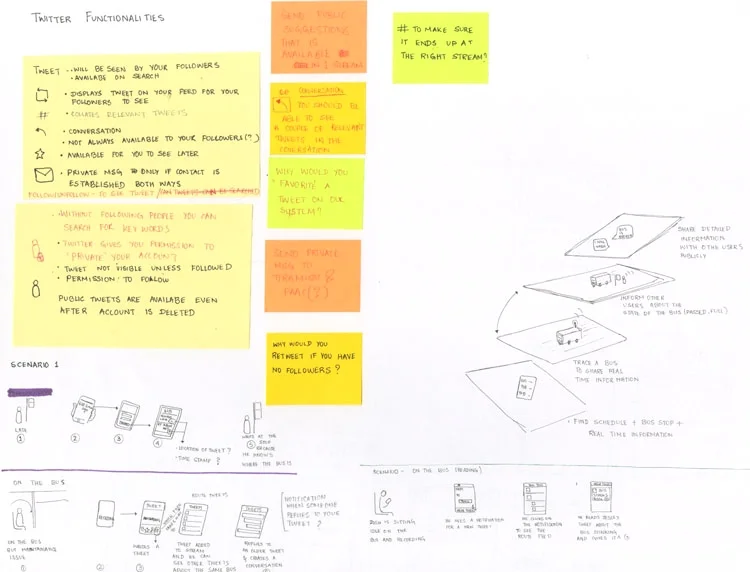 TWITTER FUNCTIONALITIES
TWEET
WILL BE SEEN BY YOUR FOLLOWERS
• AVAILABLE ON SEARCH
• DISPLAYS TWEET ON YOUR FEED FOR YOUR
FOLLOWERS TO SEE
#
• COLLATES RELEVANT TWEETS
• CONVERSATION
• NOT ALWAYS AVAILABLE TO YOUR FOLLOWERS(?)
• AVAILABLE FOR YOU TO SEE LATER
• PRIVATE MSG ONLY IF CONTACT IS
ESTABLISHED BOTH WAYS
TO SEE TWEET
• WITHOUT FOLLOWING PEOPLE YOU CAN
SEARCH FOR KEY WORDS
• TWITTER GIVES YOU PERMISSION TO
"PRIVATE" YOUR ACCOUNT
• TWEET NOT VISIBLE UNLESS FOLLOWED
• PERMISSION TO FOLLOW
PUBLIC TWEETS ARE AVAILABLE EVEN
AFTER ACCOUNT IS DELETED
SEND PUBLIC
SUGGESTIONS
THAT IS
AVAILABLE
IN 1 STREAM
CONVERSATION
YOU SHOULD BE
ABLE TO SEE
A COUPLE OF RELEVANT
TWEETS IN THE
CONVERSATION
WHY WOULD YOU
'FAVORITE' A
TWEET ON OUR
SYSTEM?
SEND PRIVATE
MSG TO
WHY WOULD YOU
RETWEET IF YOU HAVE
NO FOLLOWERS?
# TO MAKE SURE
IT ENDS UP AT
THE RIGHT STREAM?
SHARE DETAILED
INFORMATION
WITH OTHE USERS
PUBLICLY
INFORM OTHER
USERS ABOUT THE
STATE OF THE BUS (PACKED, FULL)
TRACE A BUS
TO SHARE REAL
TIME INFORMATION
• FIND SCHEDULE + BUS STOP +
REAL TIME INFORMATION
SCENARIO 1
LATE
1
2
3
4
• LOCATION OF TWEET?
• TIME STAMP?
WAITS AT THE
STOP
BECAUSE
HE KNOWS
WHERE THE BUS IS
5
ON THE BUS
ON THE BUS
BUS MAINTENANCE
ISSUE
1
2
MAKES A
TWEET
3
TWEET
ROUTE TWEETS
TWEET ADDED
TO STREAM
AND HE CAN
SEE OTHER TWEETS
ABOUT THE SAME BUS
REPLIES TO
AN OLDER TWEET
& CREATES A
CONVERSATION
NOTIFICATION
WHEN SOMEONE
REPLIES TO YOUR
TWEET?
SCENARIO - ON THE BUS (READING)
IS SITTING
IDLE ON THE
BUS AND
HE SEES A NOTIFICATION
FOR A NEW TWEET
HE CLICKS ON
THE NOTIFICATION
TO SEE THE
HE READS
TWEET ABOUT THE
BUS